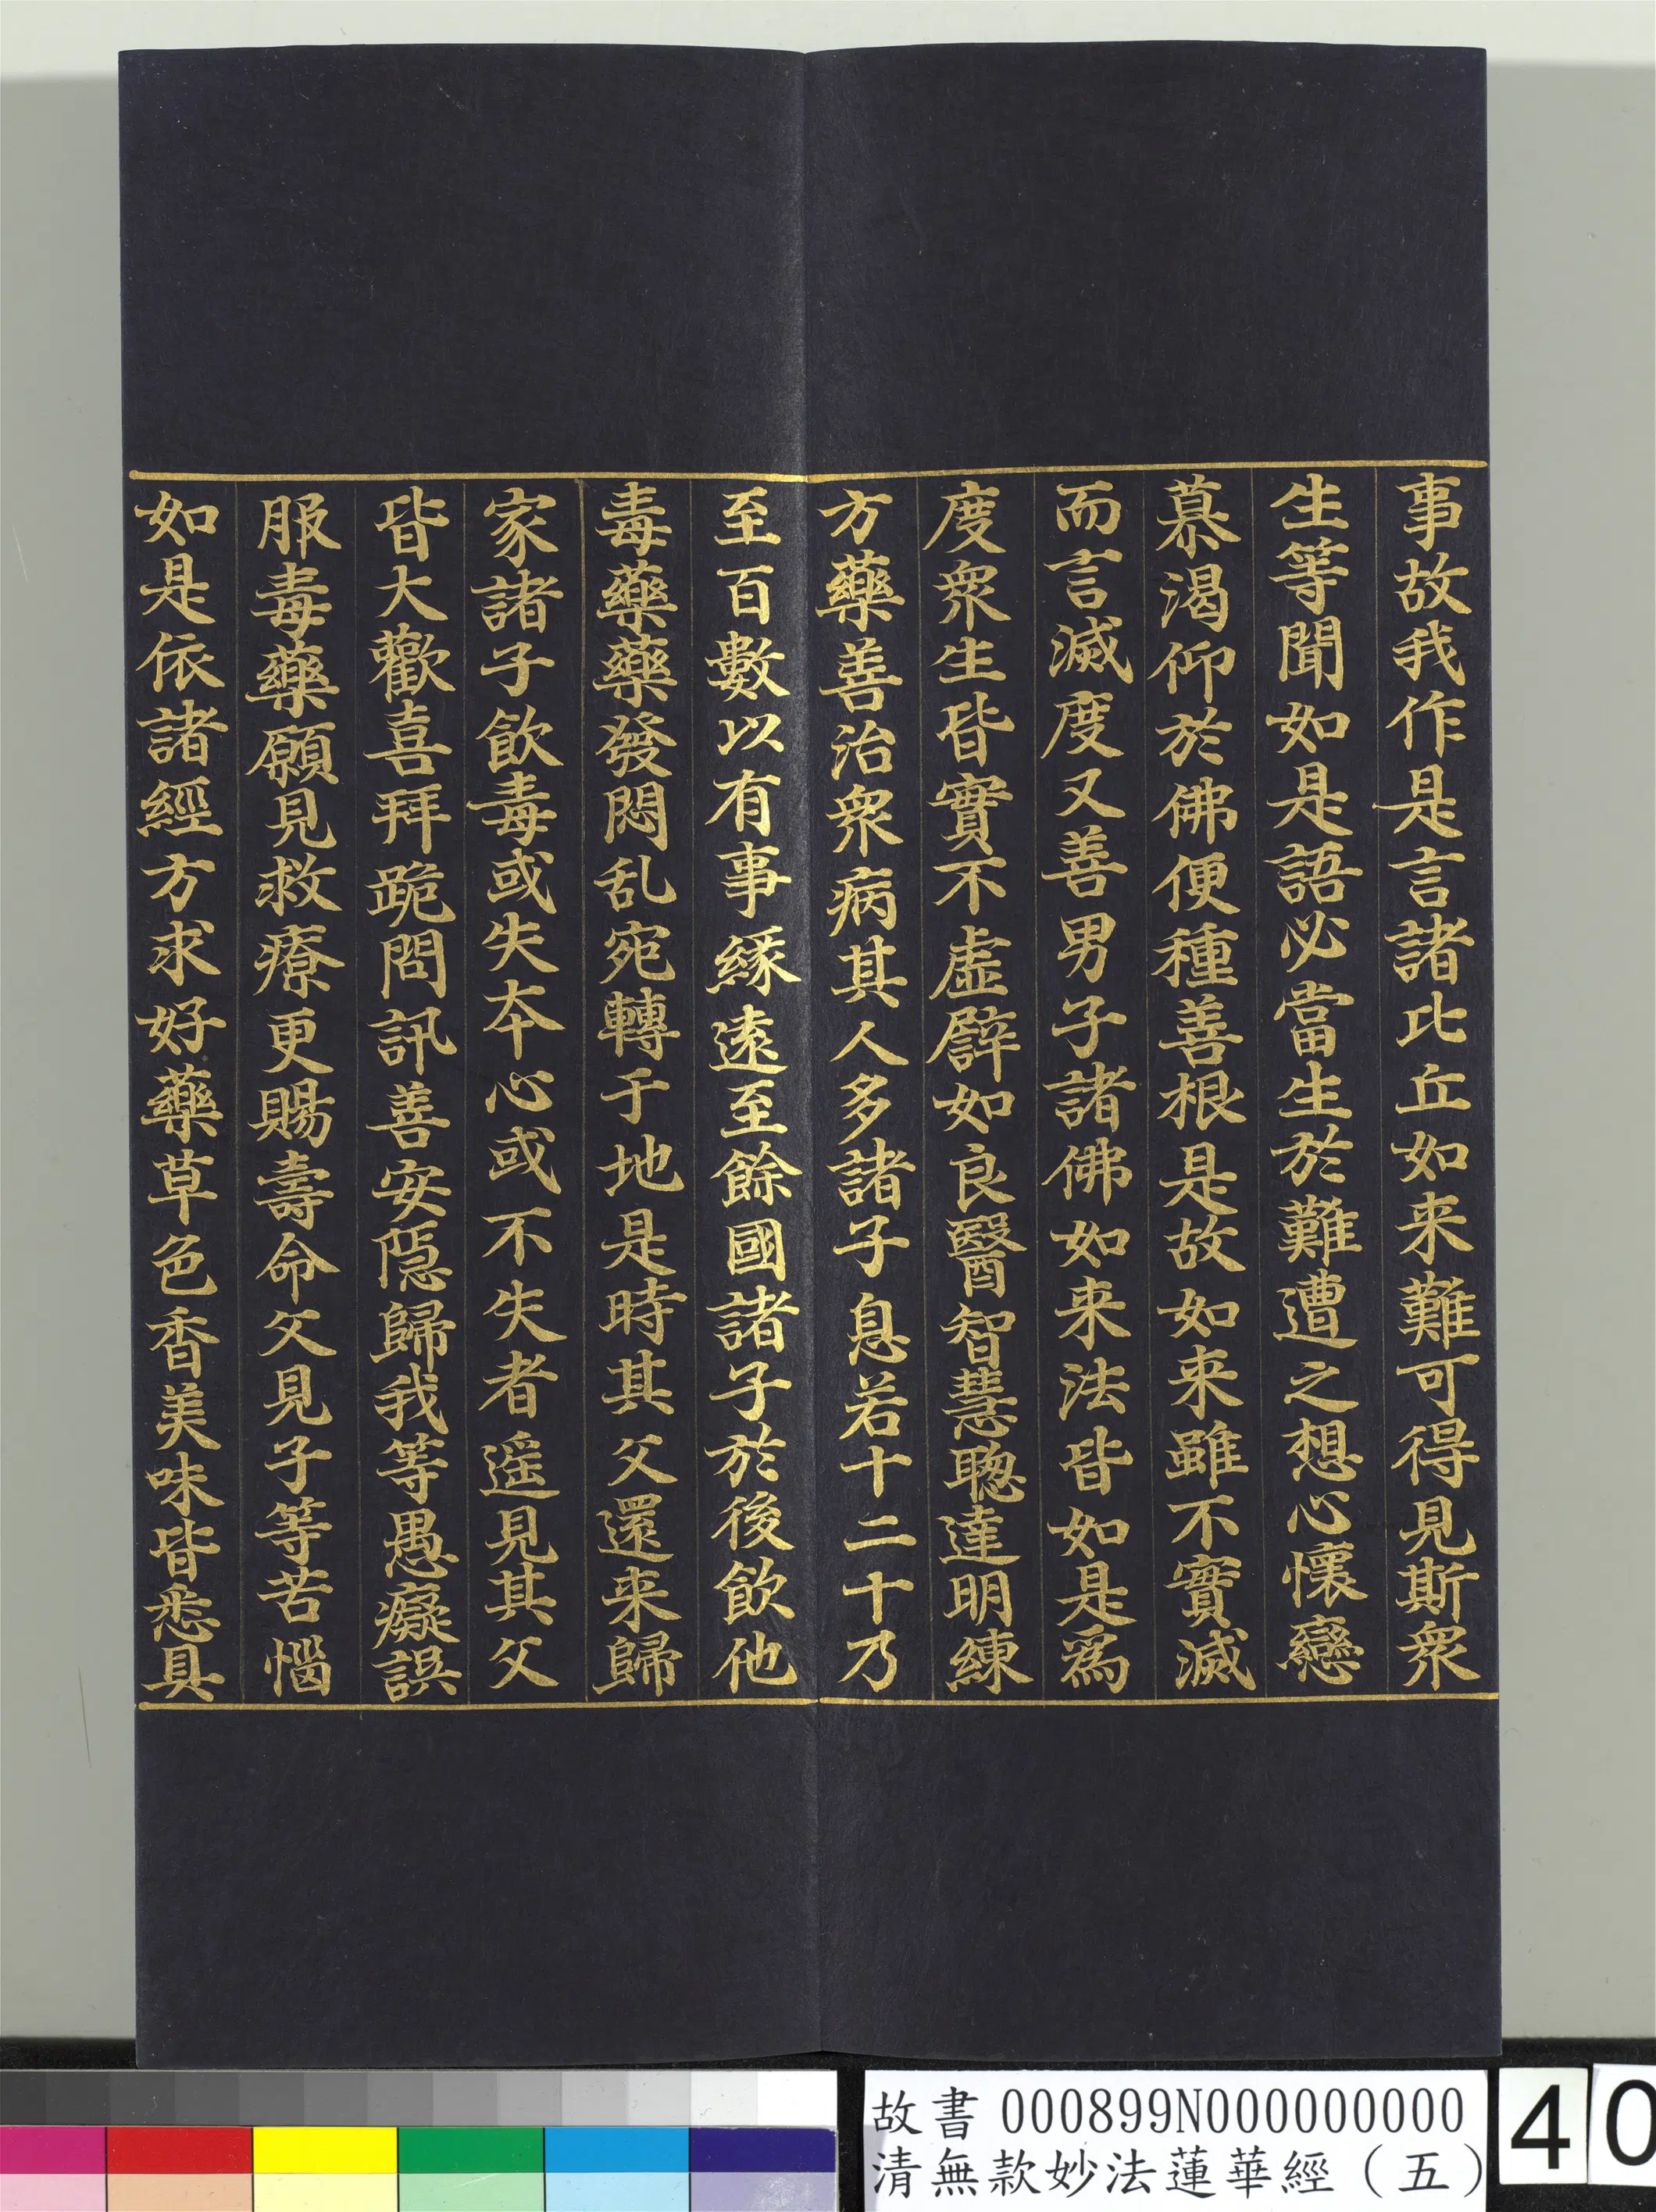 事故我作是言諸比丘如来難可得見斯衆
生等聞如是語必當生於難遭之想心懷戀
慕渴仰於佛便種善根是故如来雖不實滅
而言滅度又善男子諸佛如来法皆如是為
度衆生皆實不虛辟如良醫智慧聰達明練
方藥善治衆病其人多諸子息若十二十乃
至百數以有事緣遠至餘國諸子於後飲他
毒藥藥發悶乱宛轉于地是時其父還来歸
家諸子飲毒或失本心或不失者遥見其父
皆大歡喜拜跪問訊善安隱歸我等愚癡誤
服毒藥願見救療更賜壽命父見子等苦惱
如是依諸經方求好藥草色香美味皆悉具
故書 000899N000000000
清無款妙法蓮華經（五）
40